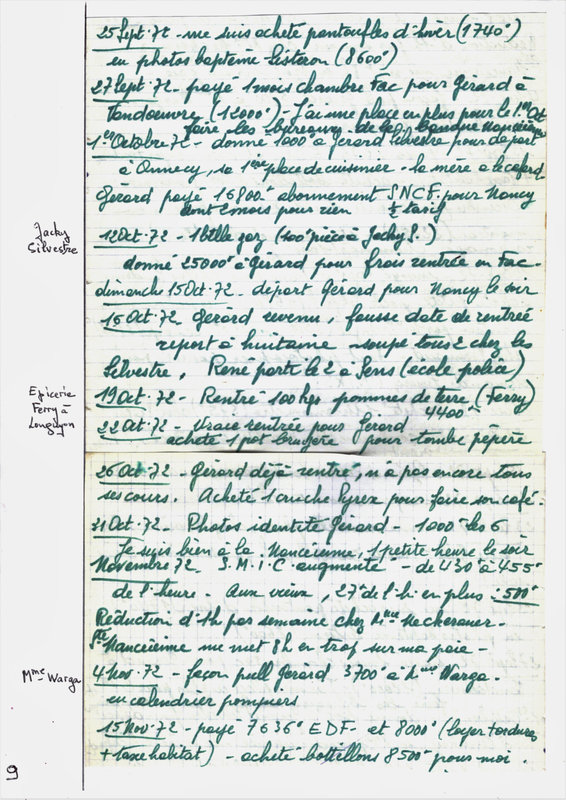 25 Sept. 72 - me suis acheté pantoufles d'hiver (1740°)
eu photos baptême Sisteron (8600°)
27 Sept. 72 - payé 1 mois chambre Fac pour Gérard à
Vandoeuvre (12000°) - J'ai une place en plus pour le 1er Oct
faire les bureaux de la banque Nancéienne
1er Octobre 72 - donné 1000° à Gérard Silvestre pour départ
à Annecy, sa 1ère place de cuisinier - la mère a le cafard
Gérard payé 16800° abonnement S.N.C.F. pour Nancy
dont 2 mois pour rien ½ tarif
Jacky
Silvestre
12 Oct. 72 - 1 btlle gaz (100° pièce à Jacky S.)
donné 25000° à Gérard pour frais rentrée en Fac -
dimanche 15 Oct. 72 - départ Gérard pour Nancy le soir
16 Oct. 72 Gérard revenu, fausse date de rentrée
report à huitaine - soupé tous 2 chez les
Silvestre, René parti le 2 à Sens (école police)
Epicerie
Ferry à
Longuyon
19 Oct. 72 - Rentré 100 kgs pommes de terre (Ferry)
4400°
22 Oct. 72 - vraie rentrée pour Gérard
acheté 1 pot bruyère pour tombe pépère
26 Oct. 72 - Gérard déjà rentré, n'a pas encore tous
ses cours. Acheté 1 cruche Pyrex pour faire son café.
31 Oct. 72 - Photos identité Gérard - 1000° les 6
Je suis bien à la Nancéienne, 1 petite heure le soir
Novembre 72 - S.M.I.C. augmenté - de 430° à 455°
de l'heure. Aux vieux, 27° de l'h. en plus : 500°
Réduction d'1h par semaine chez Mme
Sté Nancéienne me met 8h en trop sur ma paie -
Mme Warga
4 Nov. 72 - façon pull Gérard 3700° à Mme Warga.
eu calendrier pompiers
15 Nov. 72 - payé 7636° EDF et 8000° (loyer + ordures
+ taxe habitat) - acheté bottillons 8500° pour moi.
9